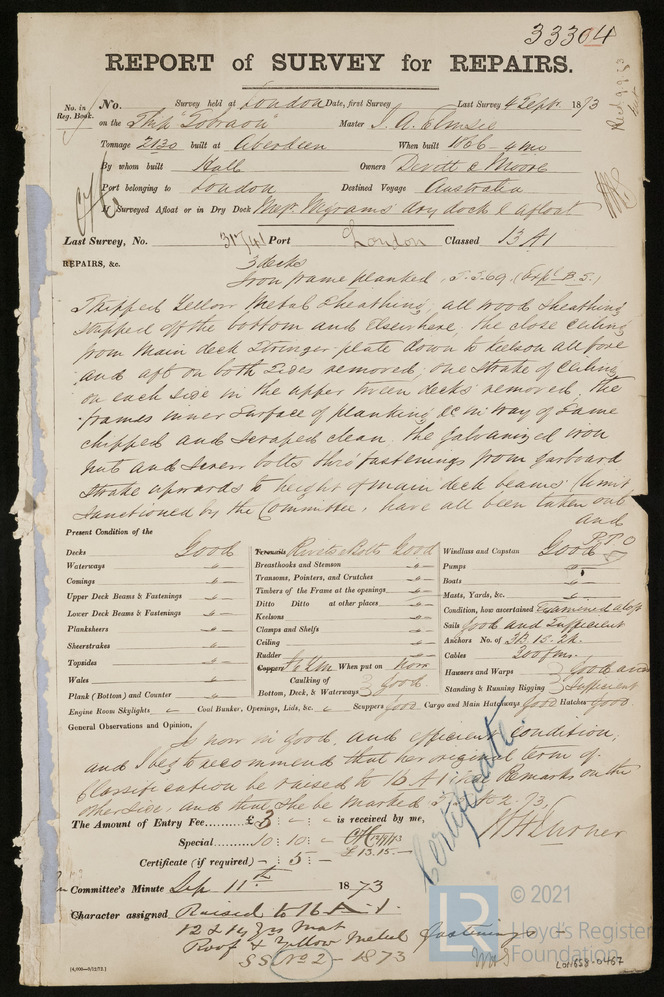 33304
REPORT of SURVEY for REPAIRS.
No. in Reg. Book.
No. Survey held at London Date, first Survey Last Survey 4 Sept 1873
on the Ship "Sobraon" Master J. A. Elmslie
Tonnage 2130 built at Aberdeen When built 1866 - 4 mo
By whom built Hall Owners Devitt & Moore
Port belonging to London Destined Voyage Australia
If Surveyed Afloat or in Dry Dock Messrs Wigrams dry dock & afloat
Last Survey, No. 31741 Port London Classed 13 A1
REPAIRS, &c. 3 decks
Iron frame planked,
Stripped Yellow Metal Sheathing, all wood Sheathing
stripped off the bottom and Elsewhere, the close Ceiling
from Main deck Stringer plate down to Keelson all fore
and aft on both Sides removed, one Strake of Ceiling
on each Side in the upper tween decks removed, the
frames inner surface of planking &c in way of Same
chipped and Scraped clean. the Galvanized iron
nut and Screw bolts thro' fastenings from garboard
Strake upwards to height of main deck beams (limit
Sanctioned by the Committee, have all been taken out
and
PTO
Present Condition of the
Decks Good
Waterways "
Comings "
Upper Deck Beams & Fastenings "
Lower Deck Beams & Fastenings "
Planksheers "
Sheerstrakes "
Topsides "
Wales "
Plank (Bottom) and Counter "
Engine Room Skylights "
Coal Bunker, Openings, Lids, &c. "
Treenails Rivets & Bolts Good
Breasthooks and Stemson "
Transoms, Pointers, and Crutches "
Timbers of the Frame at the openings "
Ditto Ditto at other places "
Keelsons "
Clamps and Shelfs "
Ceiling "
Rudder "
Copper When put on Now
Caulking of Bottom, Deck, & Waterways } Good
Scuppers good Cargo and Main Hatchways Good Hatches good
Windlass and Capstan Good
Pumps "
Boats "
Masts, Yards, &c. "
Condition, how ascertained Examined aloft
Sails Good and Sufficient
Anchors No. of 3B. 1S. 2K.
Cables 300 fms.
Hawsers and Warps } Good and
Standing & Running Rigging } Sufficient
General Observations and Opinion,
Is now in good and efficient condition,
and I beg to recommend that her original term of
Classification be raised to 16 A1 Remarks on the
other side, and that she be marked SS No 2. 73.
Certificate.
The Amount of Entry Fee......£ 3 : - : - is received by me,
Special...... 10 : 10 : -
£13.15.-
Certificate (if required) - : 5 : -
Committee's Minute Sep 11th 1873
Character assigned Raised to 16 A.1.
Roof & Yellow Metal fastenings
SS No 2 - 1873
[4,000—9/12/72.]
LR
© 2021
Lloyd's Register
Foundation
LON658-0467